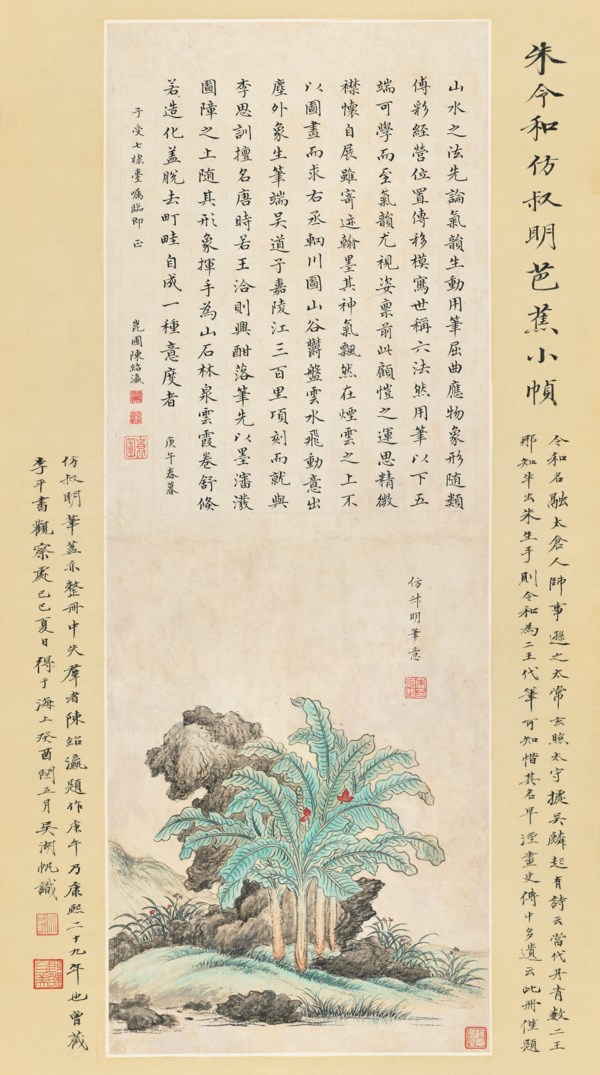 朱令和仿叔明芭蕉小幀
令和名融太倉人師事遜之太常玄照太守據吳麟起有詩云當代丹青數二王
那知半出朱生手則令和為二王代筆可知惜其名早湮畫史傳中多遺云此冊僅題
山水之法先論氣韻生動用筆屈曲應物象形隨類
傅彩經營位置傳移模寫世稱六法然用筆以下五
端可學而至氣韻尤視姿稟前此顧愷之運思精微
襟懷自展雖寄迹翰墨其神氣飄然在煙雲之上不
以圖畫而求右丞輞川圖山谷鬱盤雲水飛動意出
塵外象生筆端吳道子嘉陵江三百里頃刻而就與
李思訓擅名唐時若王洽則興酣落筆先以墨瀋潑
圖障之上隨其形象揮手為山石林泉雲霞卷舒倏
若造化蓋脫去町畦自成一種意度者
庚午春暮
于受七棣臺囑臨即正
崑圃陳紹瀛
仿叔明筆意
仿叔明筆蓋亦整冊中失群者陳紹瀛題作庚午乃康熙二十九年也曾藏
李平書觀察處己巳夏日得于海上癸酉閏五月吳湖帆識